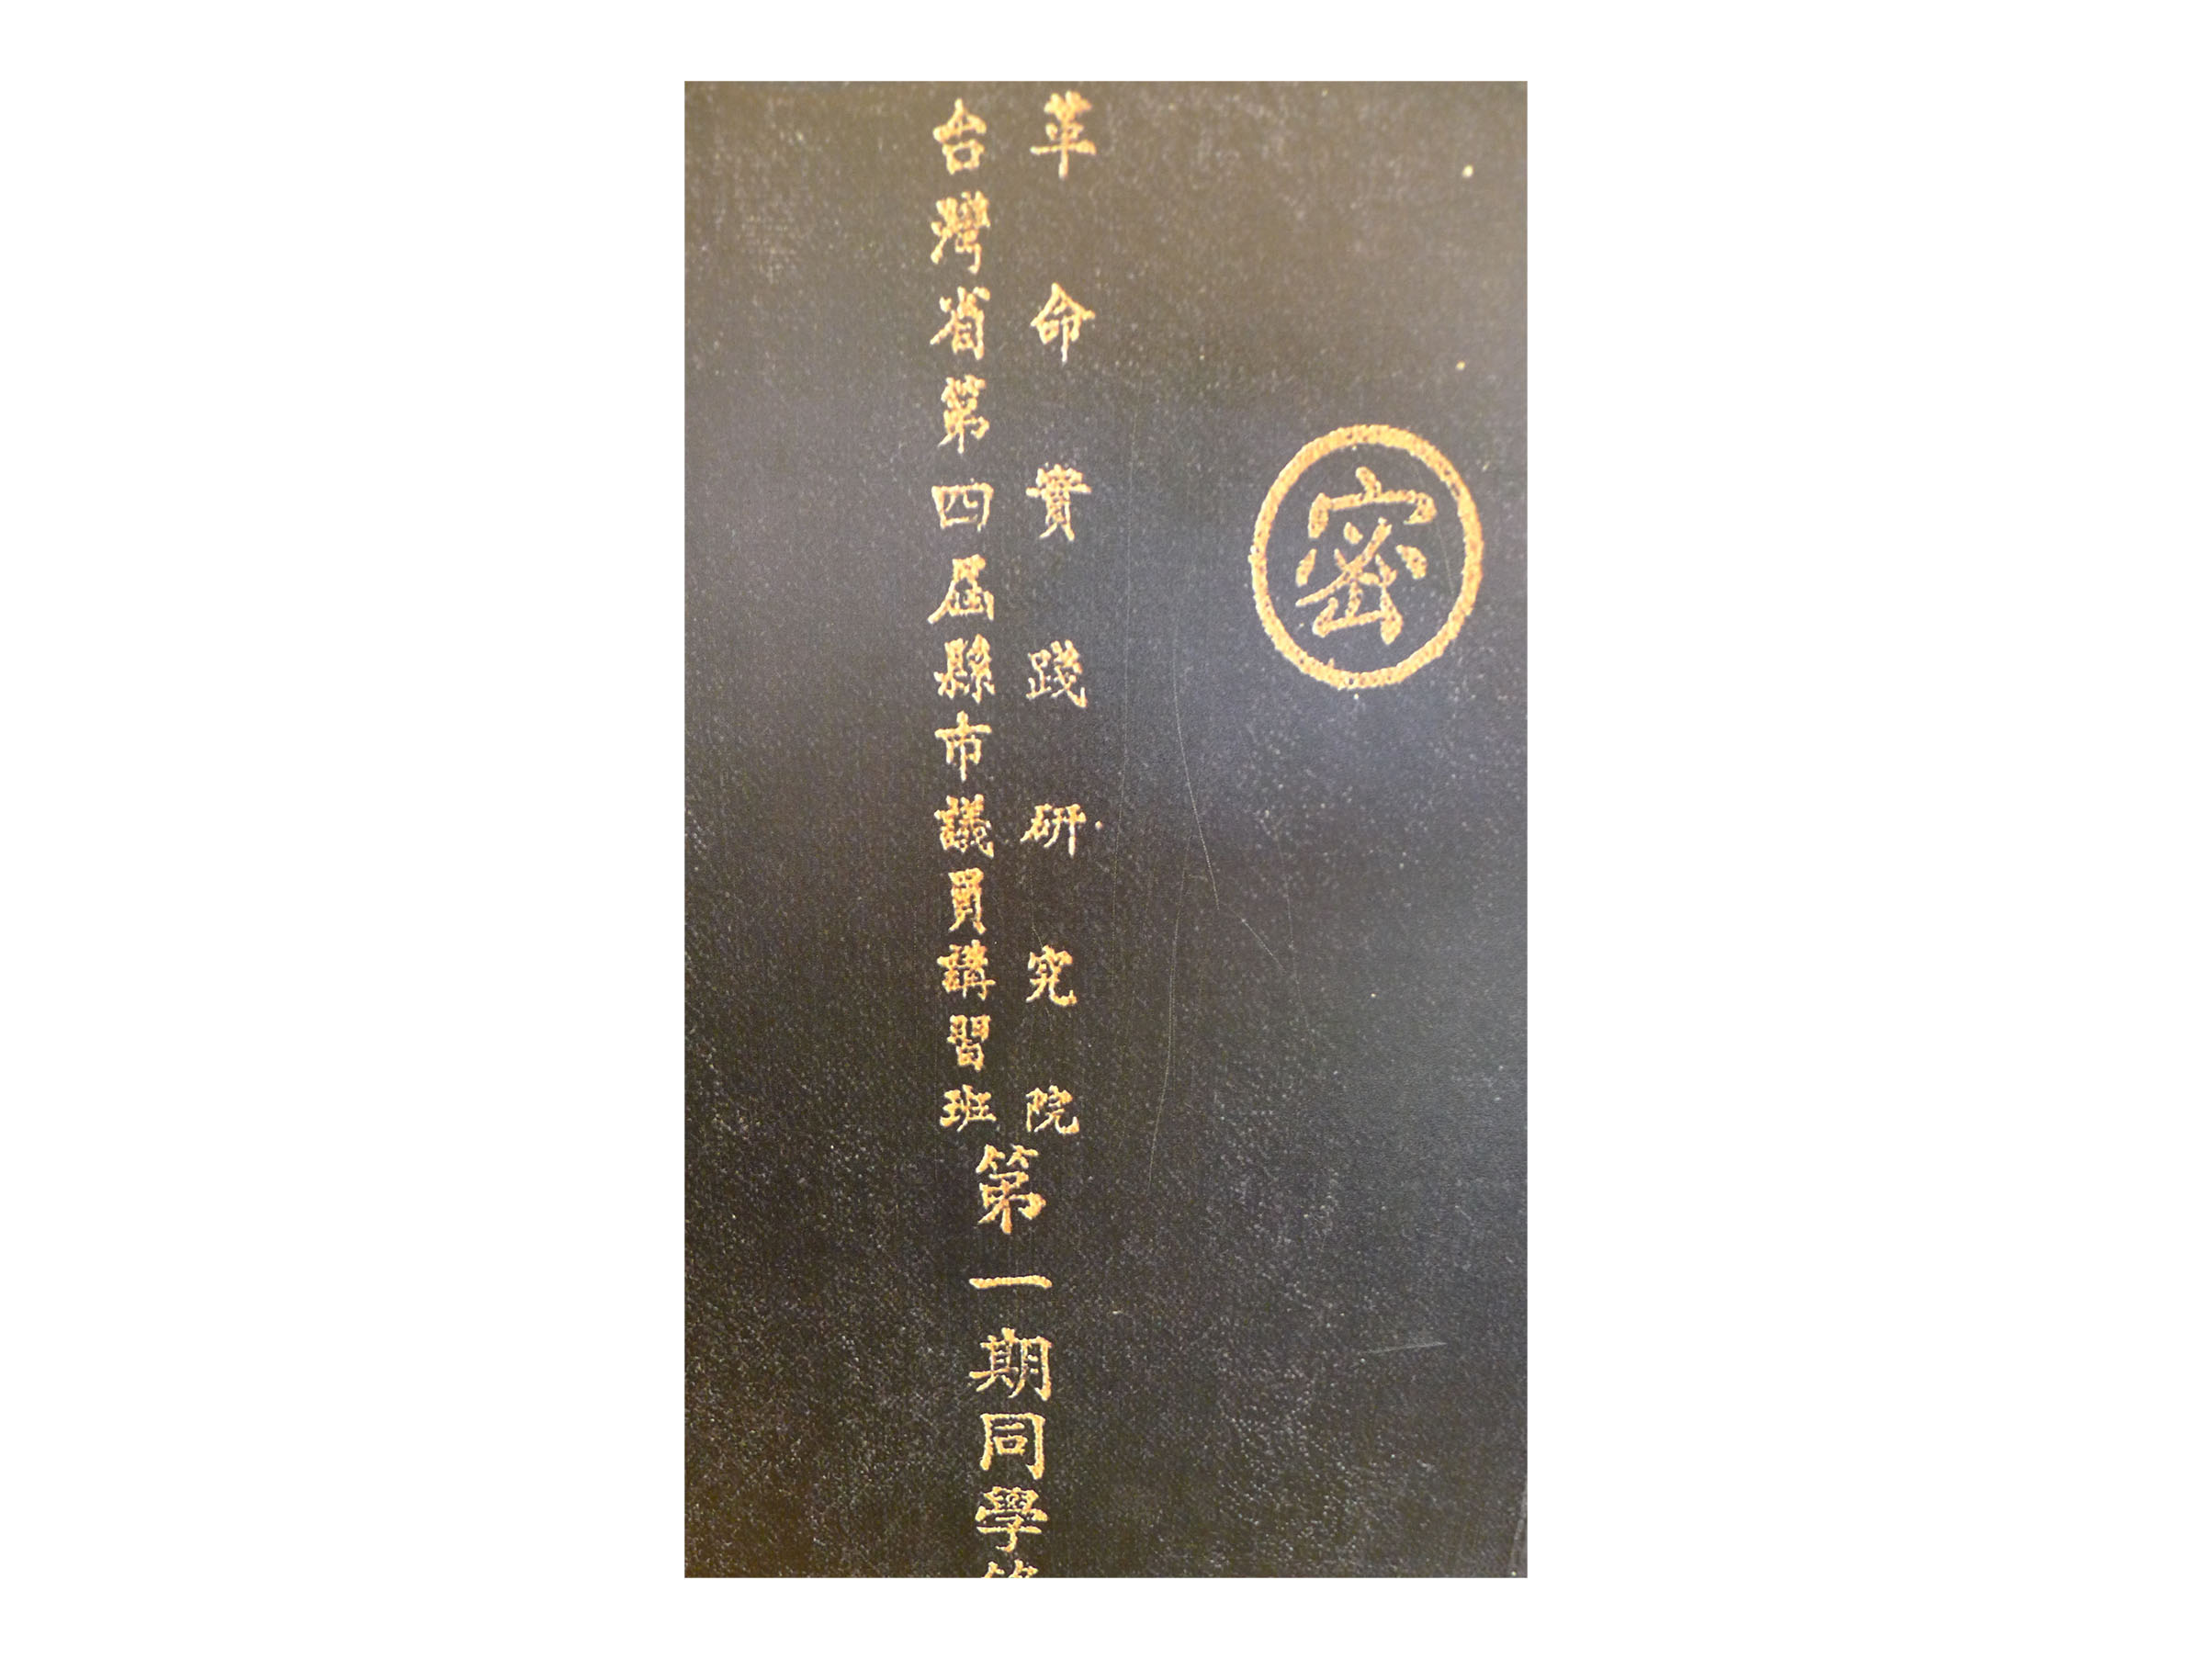 密
革命實踐研究院
台灣省第四屆縣市議員講習班
第一期同學